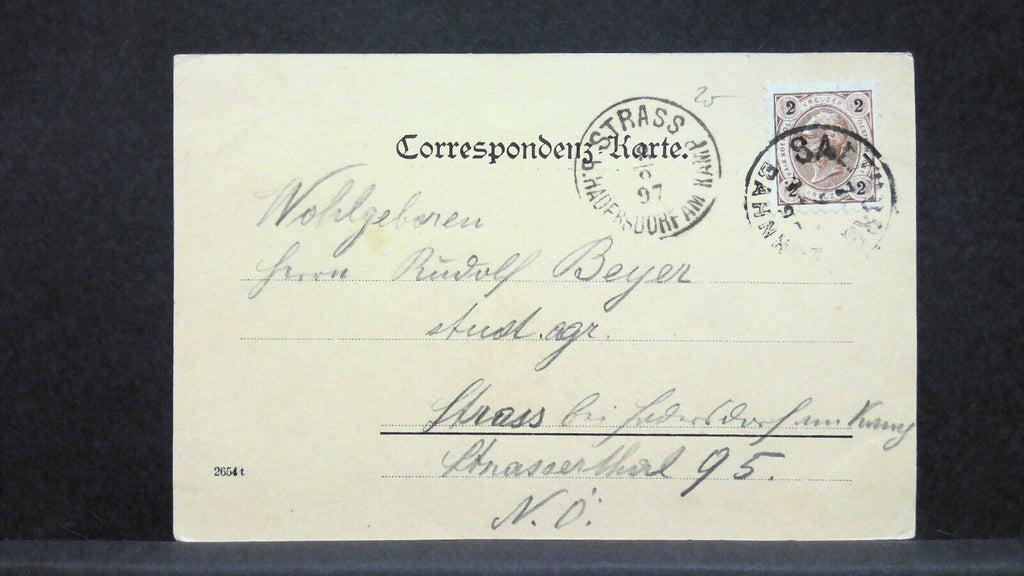 25
Correspondenz-Karte.
STRASS
B. HADERSDORF AM KAMP
97
2 KREUZER 2
2
SAA
BAHNH
Wohlgeboren
Herrn Rudolf Beyer
stud. agr.
Strass bei Hadersdorf am Kamp
Strasserthal 95.
N. Ö.
2654 t